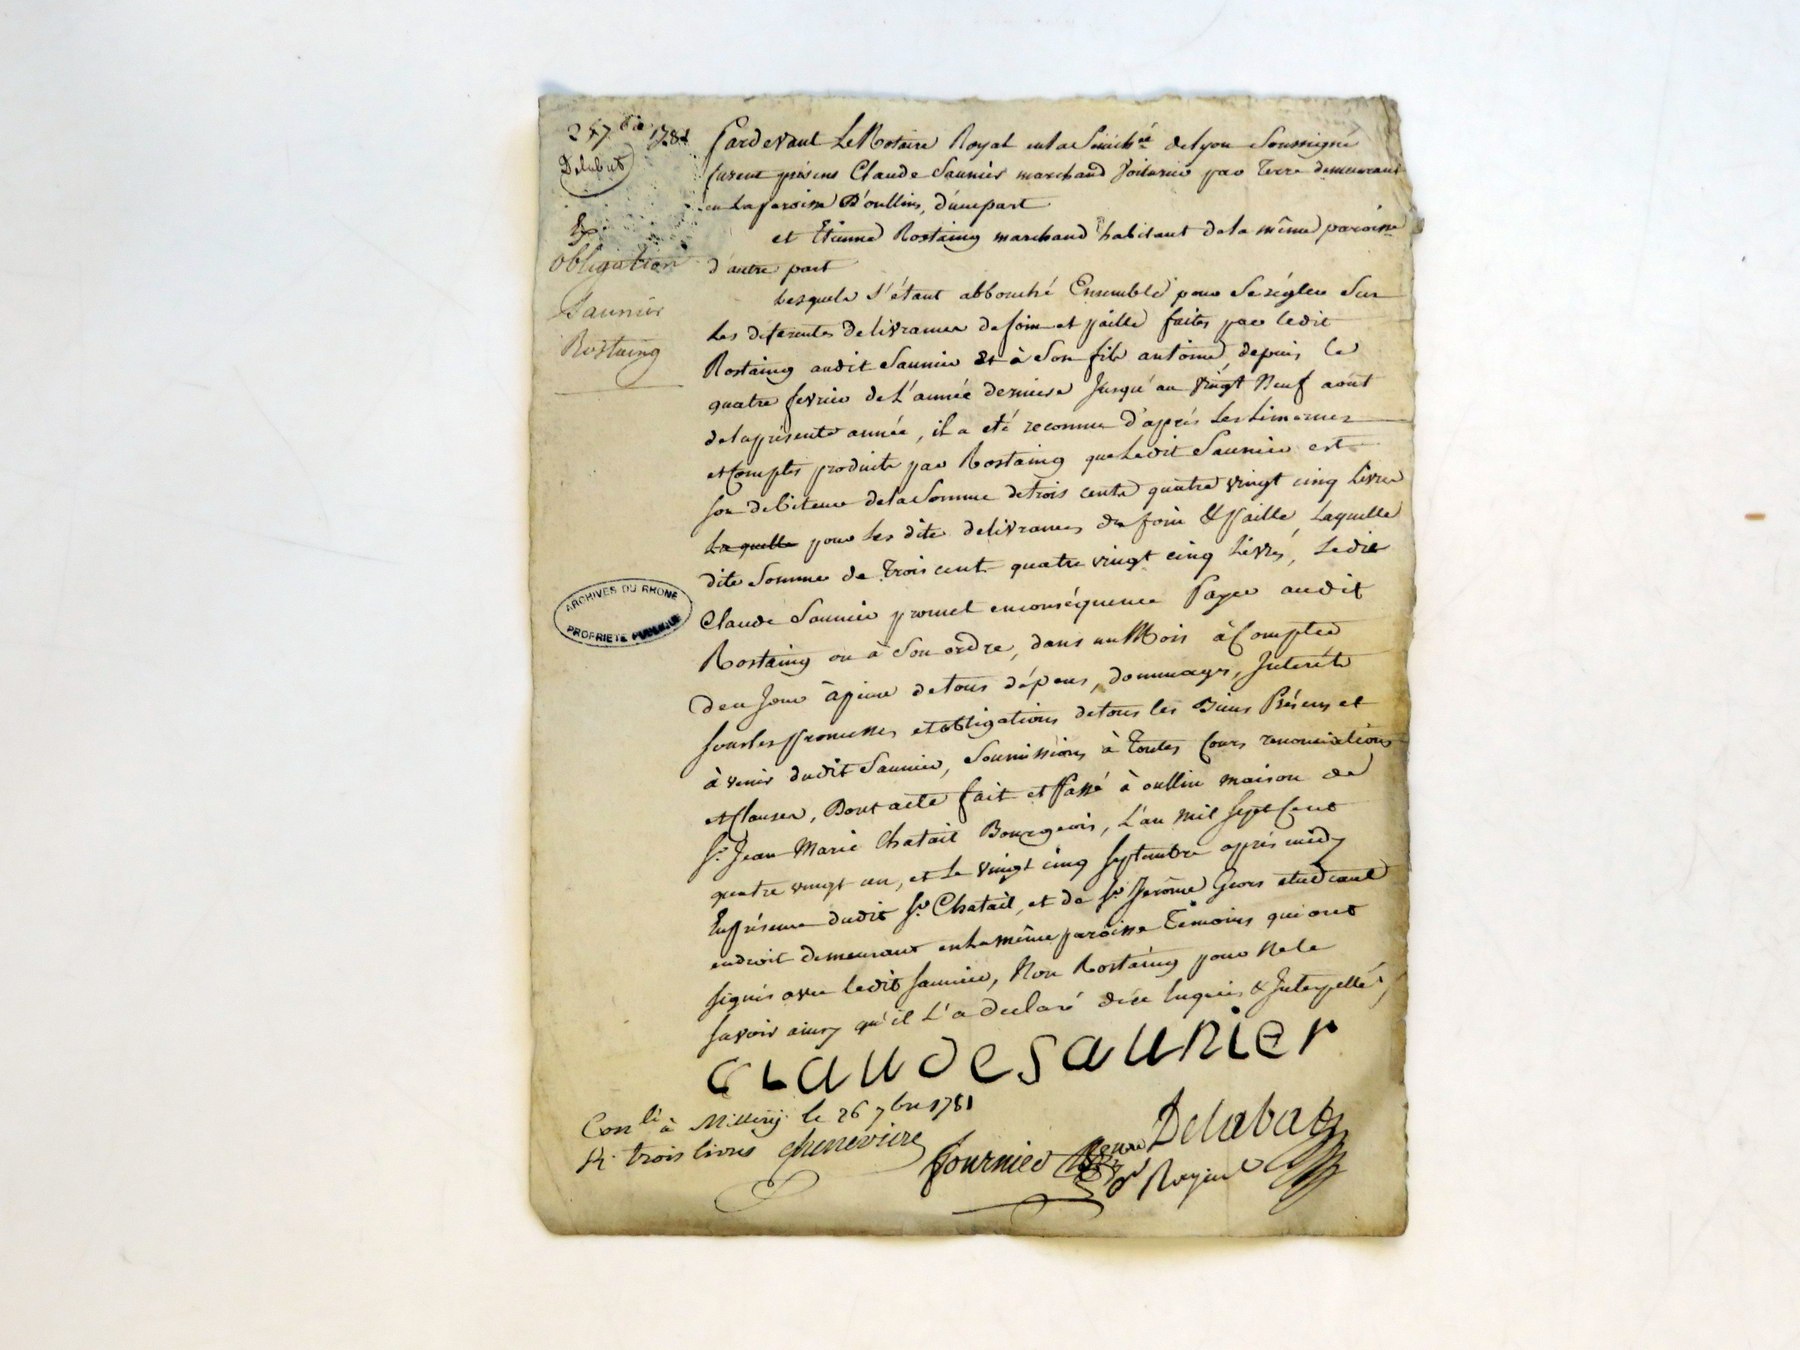 25 7bre 1781
Delabat
Ex
obligation
Saunier
Rostaing
ARCHIVES DU RHONE
PROPRIETE PUBLIQUE
Pardevant Le Notaire Royal en la Sénéch.ée de Lyon Soussigné
furent présens Claude Saunier marchand Voiturier par Terre demeurant
en La paroisse D'oullins, d'une part
et Etienne Rostaing marchand habitant de la même paroisse
d'autre part
Lesquels s'étant abbouché Ensemble pour Se régler Sur
Les diferentes delivrances de foin et paille faites par ledit
Rostaing audit Saunier Et à Son fils antoine depuis le
quatre fevrier de L'année derniere Jusqu'au Vingt Neuf août
de la présente année, il a eté reconnu d'après Les
et Comptes produits par Rostaing que Ledit Saunier est
son debiteur de la Somme de trois cents quatre vingt cinq Livres
Laquelle pour Les dite delivrances de foin & Paille, Laquelle
dite Somme de Trois cent quatre vingt cinq Livres, Ledit
Claude Saunier promet en conséquence Payer audit
Rostaing ou à Son ordre, dans un Mois à Compter
de ce Jour à peine de tous dépens, dommages, Interêts
sous les Promesses et obligations de tous les Biens Présens et
à venir dudit Saunier, Soumissions à Toutes Cours renonciations
et Clauses, Dont acte fait et Passé à oullin maison de
Sr. Jean Marie Chatail Bourgeois, L'an Mil Sept Cent
quatre vingt un, et Le Vingt cinq Septembre après midy
En présence dudit Sr. Chatail, et de Sr. Jerôme Gros etudiant
en droit demeurant en La même paroisse Témoins qui ont
signés avec ledit Saunier, Non Rostaing pour Ne le
savoir ainsy qu'il L'a declaré de ce Enquis & Interpellé,
CLAUDE SAUNIER
Con.lé à Millery le 26 7bre 1781
R. trois livres Chenevière
fournier
Delabat
Royal